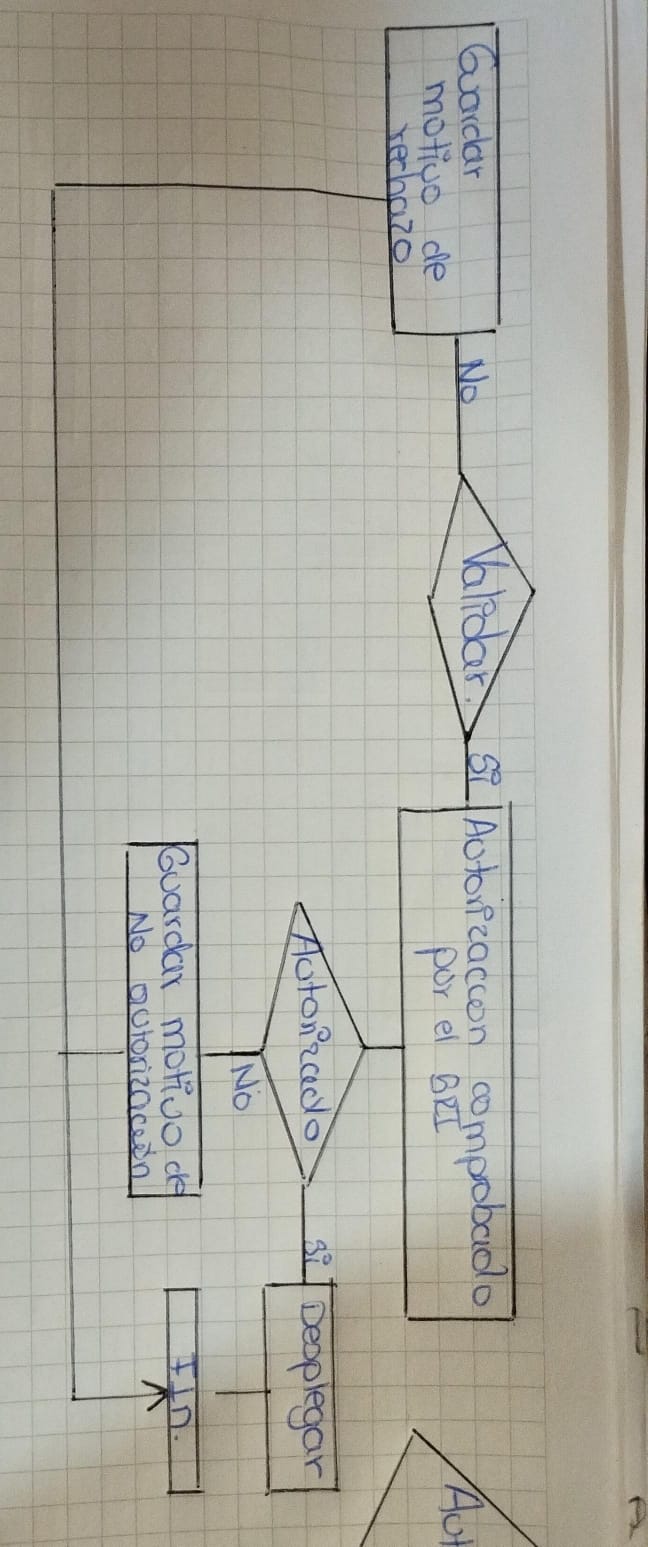 Guardar
motivo de
rechazo
No
Validar.
Si
Autorizaccion comprobado
por el SRI
Autorizado
Si
Desplegar
No
Guardar motivo de
No autorización
FIn.
Aut